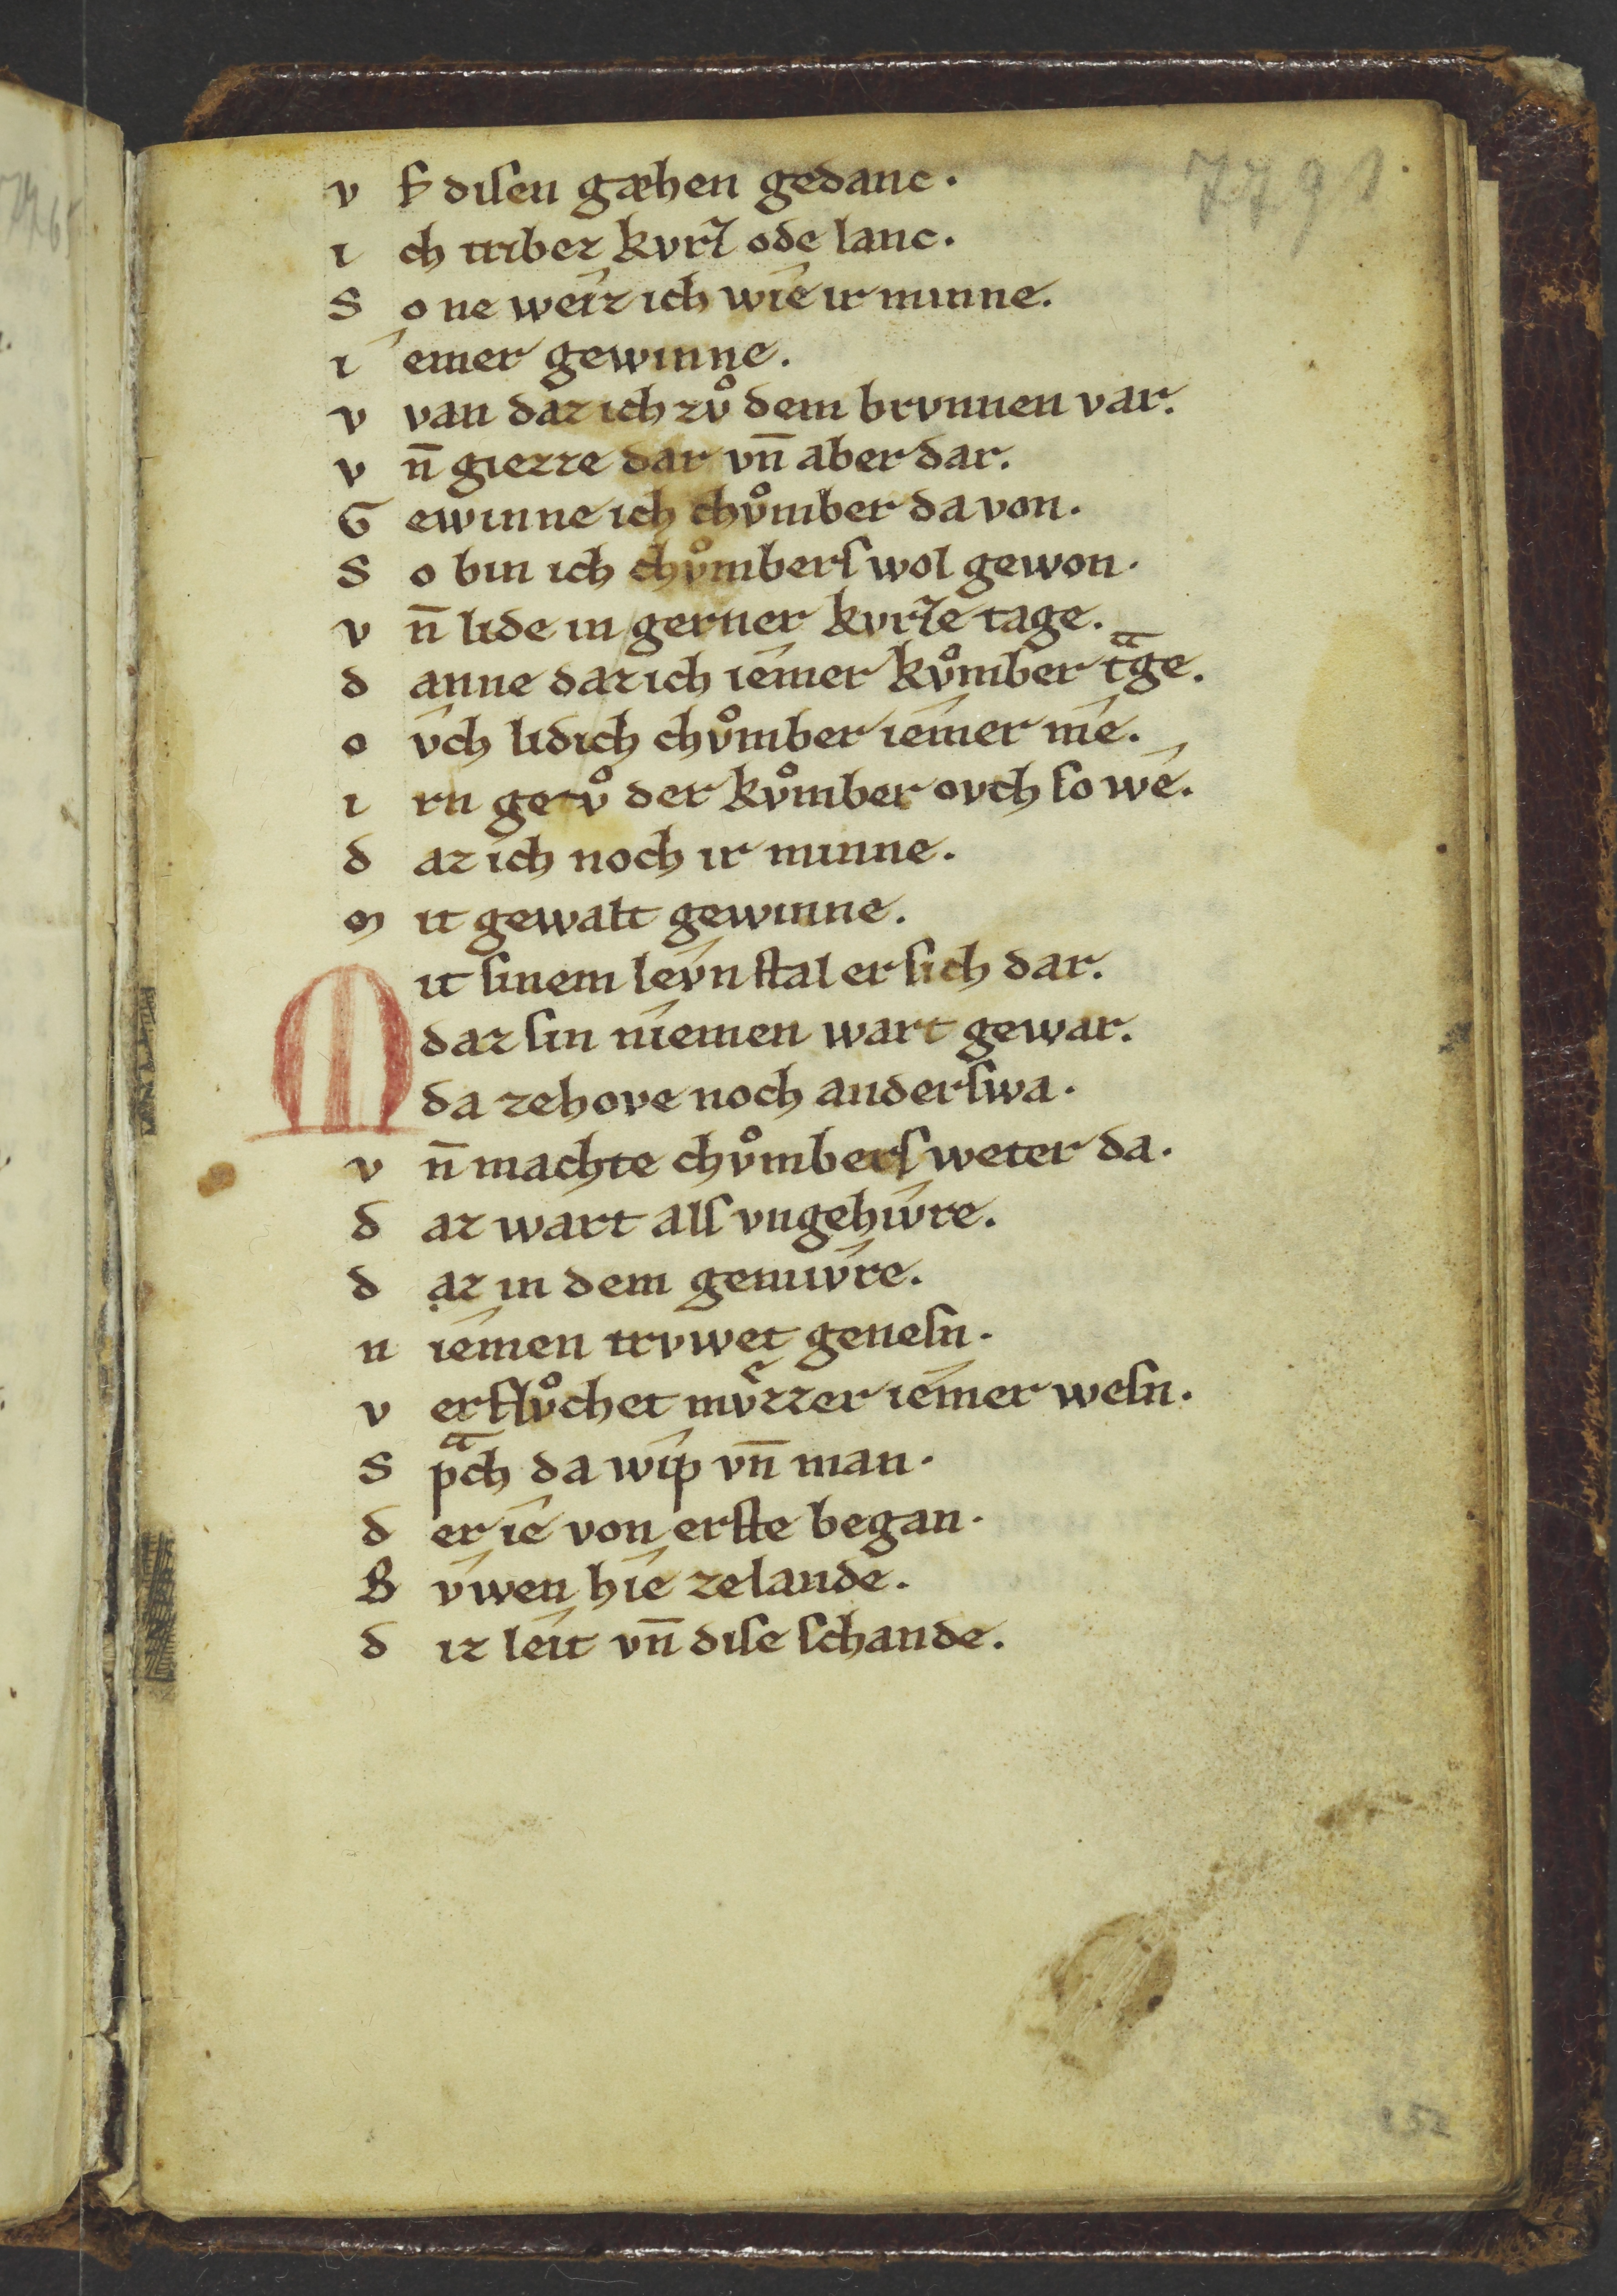 7791
v f diſen gæhen gedanc.
i ch tribez kvrz ode lanc.
S o ne weiz ich wîe ir minne.
î emer gewinne.
v van daz ich zvͦ dem brvnnen var.
v n̄ giezze dar vn̄ aber dar.
G ewinne ich chvͦmber da von.
S o bin ich chvͦmberſ wol gewon.
v n̄ lide in gerner kvrze tage.
d anne daz ich îemer kvͦmber tͣge.
o v̂ch lidich chvͦmber îemer mê.
i rn getvͦ der kvͦmber ovch ſo wê.
d az ich noch ir minne.
m it gewalt gewinne.
M it ſinem lev̂n ſtal er ſich dar.
daz ſin nîemen wart gewar.
da zehove noch anderſwa.
v n̄ machte chvͦmberſ weter da.
d az wart alſ vngehiv̂re.
d az in dem gemiv̂re.
n îemen trvwet geneſn.
v erflvͦchet mvͤzzer îemer weſn.
S pͣch da wîp vn̄ man.
d er îe von erſte began.
B v̂wen hîe zelande.
d iz leît vn̄ diſe ſchande.
152